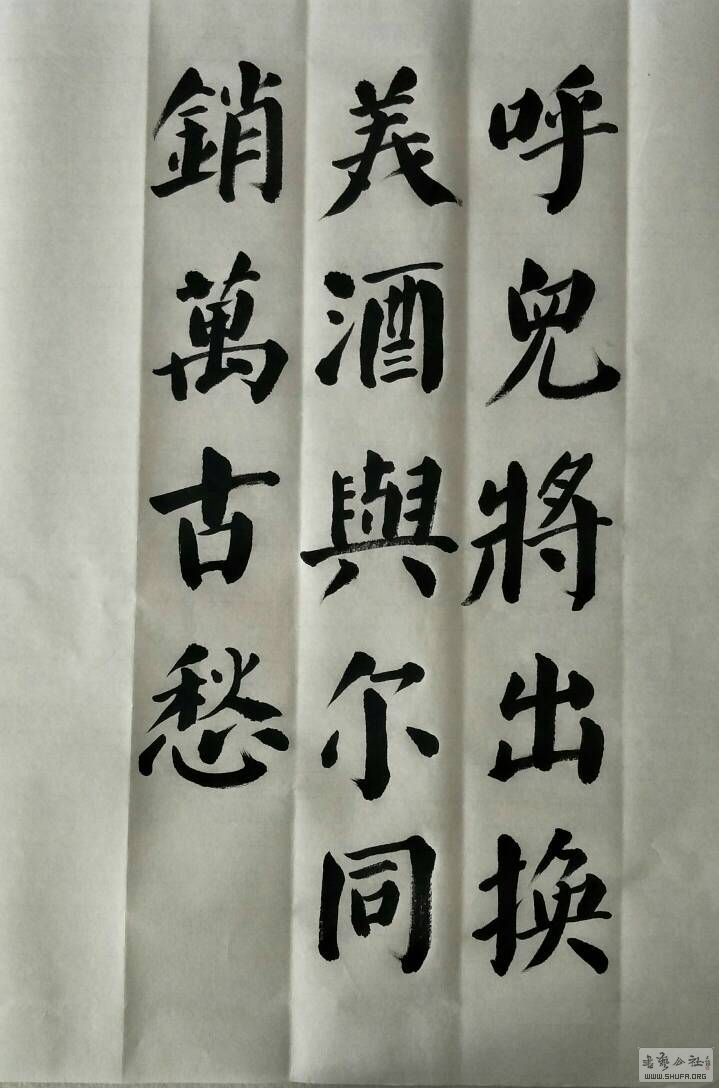 呼兒將出換
美酒與尔同
銷萬古愁
WWW.SHUFA.ORG